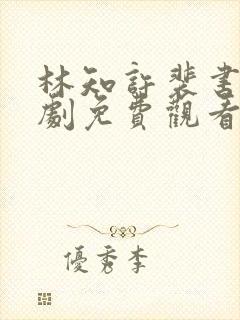 林知許裴書
劇免費觀看
優秀李